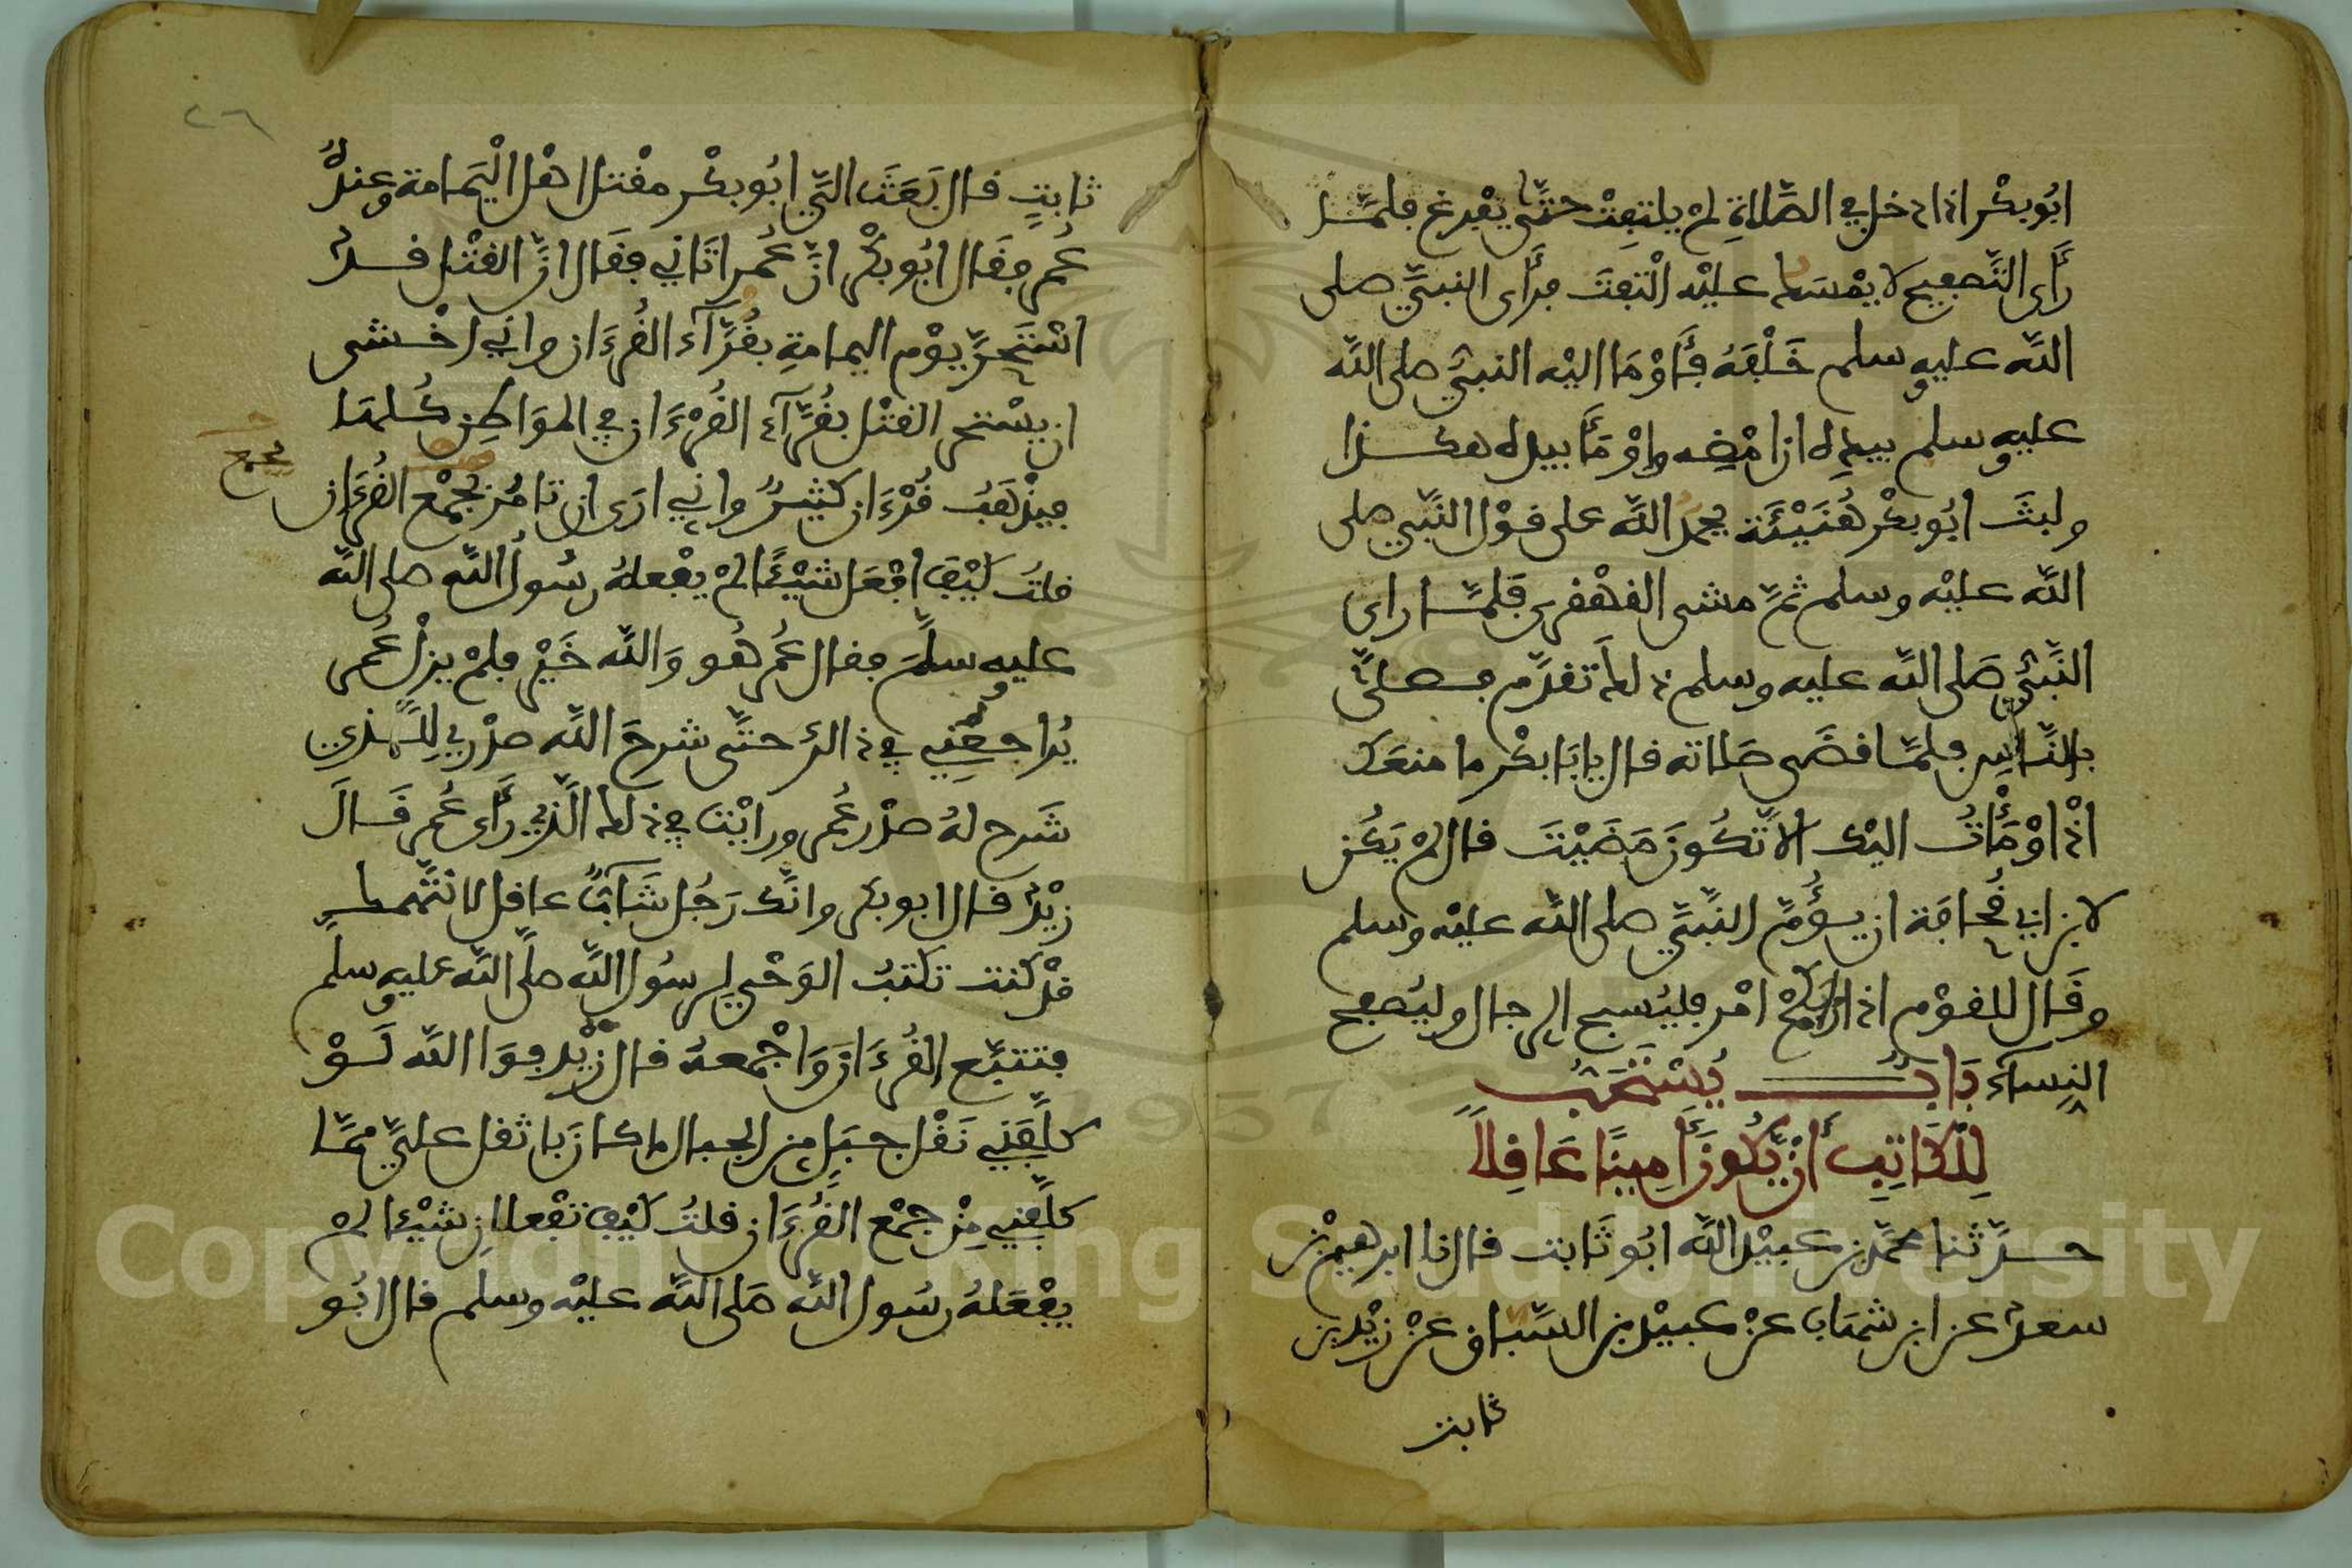 ابُو بكْر اذا دخل في الصَّلاةِ لمْ يلتفِتْ حتَّى يفْرغ فلمّــا
رَأى التَّصفيح لا يمْسَك عليْه الْتفتَ فرَأى النبيَّ صلى
اللّه عليه وسلم خَلْفَهُ فأَوْمَا اليْه النبيُّ صلى اللّه
عليه وسلم بيدِه ان امْضِه واوْمَأ بيده هكــذا
ولبثَ ابُو بكْر هُنَيْئَة يحمد اللّه على قوْل النَّبي صلى
اللّه عليْه وسلم ثمّ مشى القهْقرى فلمّــا راى
النَّبيُّ صَلى اللّه عليه وسلم ذلك تقدّم فصلَّى
بالنَّاسِ فلمّا قضَى صَلاته قال يا بَا بكْر ما منعَك
اذْ اوْمَأْتُ اليْك الاَّ تكُونَ مَضَيْتَ قال لمْ يَكُن
لابن ابي قُحافَة ان يؤُمّ النَّبيَّ صلى اللّه عليْه وسلم
وقَال للقوْم اذا رابكمْ امْر فليُسبح الرجال وليُصفح
النِسآء بَابٌ يُسْتَحَبُّ
لِلْكَاتِبِ أَنْ يَّكُونَ أَمِينًا عَاقِلاً
حــدّثنا محمّد بن عبيْد اللّه ابُو ثَابت قال نا ابرهيم بْن
سعد عن ابن شهاب عنْ عبيْد بن السّباق عنْ زيْد بن
ثابت
٢٦
ثابتٍ قال بَعَثَ اليَّ ابُو بكْر مقْتل اهْل الْيَمامة وعندهُ
عُمر فقَال ابُو بكْر انّ عُمر اتَاني فقَال انّ القتْل قــد
اسْتَحرَّ يوْم اليمامةِ بقُرَّآء القُرءَان واني اخْشى
ان يسْتحر القتْل بقُرّآء القُرْءَان في المَواطِن كُلهَا
فيذْهَبَ قُرْءَان كثيرٌ واني ارَى ان تامُر بجمْع القُرءَان
بجمع
قلتُ كيْف افْعَل شيْئًا لمْ يفْعلهُ رسُولُ اللّه صلى اللّه
عليه وسلّمَ فقال عُمر هُو وَاللّه خَيْر فلمْ يزلْ عُمر
يُراجعُني في ذالك حتَّى شرحَ اللّه صدْري للــذي
شَرح لهُ صدْر عُمر ورايْتُ في ذلك الَّذي رَأى عُمر قَــالَ
زيْد قال ابو بكر وانَّك رَجُل شَابٌّ عاقل لا نتّهمك
قدْ كنت تكتبُ الوَحْي لرسُول اللّه صلَّى اللّه عليه وسلّم
فتتبّع القُرءَان وَاجْمعهُ قال زيْد فوَا اللّه لَــوْ
كلَّفَني نَقْل جبَلٍ من الجبال ما كان بَاثقل عليّ ممّـا
كلّفني مِنْ جمْع القُرءَان قلتُ كيْف تفْعلانِ شيْئا لمْ
يفْعَلهُ رسُول اللّه صَلى اللّه عليْه وسلم قال ابُو
Copyright © King Saud University
1957